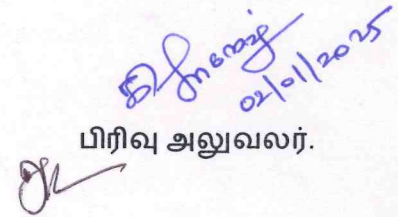 02/01/2025
பிரிவு அலுவலர்.